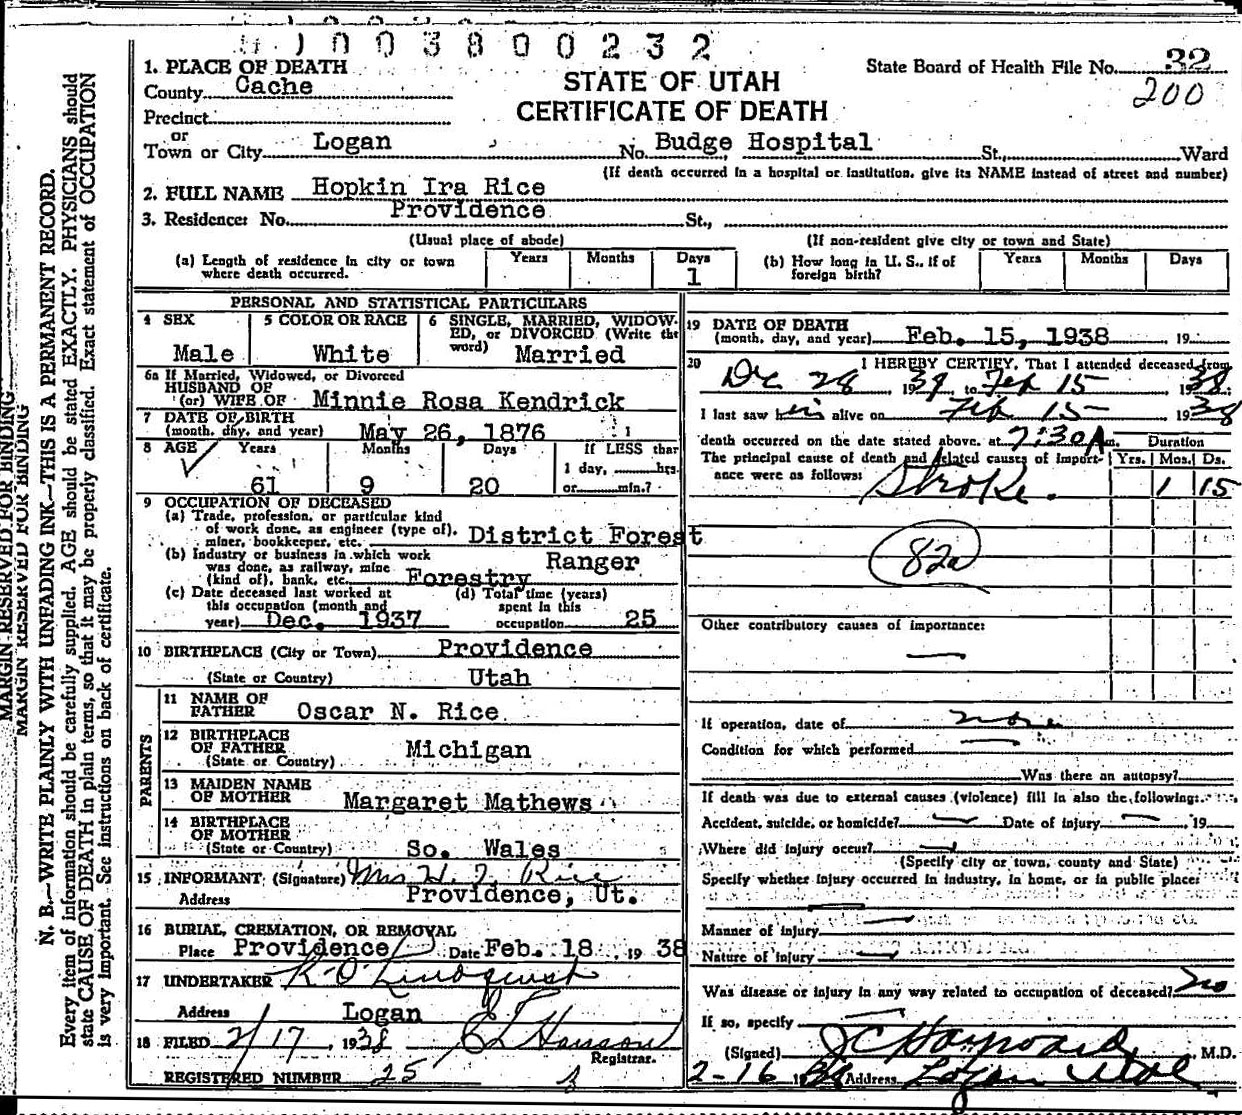 1003800232
1. PLACE OF DEATH
County Cache
Precinct
or
Town or City Logan No. Budge Hospital St., Ward
STATE OF UTAH
CERTIFICATE OF DEATH
State Board of Health File No. 32
200
(If death occurred in a hospital or institution, give its NAME instead of street and number)
2. FULL NAME Hopkin Ira Rice
3. Residence: No. Providence St.,
(Usual place of abode) (If non-resident give city or town and State)
(a) Length of residence in city or town where death occurred. Years Months Days 1
(b) How long in U. S., if of foreign birth? Years Months Days
PERSONAL AND STATISTICAL PARTICULARS
4 SEX Male
5 COLOR OR RACE White
6 SINGLE, MARRIED, WIDOWED, or DIVORCED (Write the word) Married
6a If Married, Widowed, or Divorced
HUSBAND OF
(or) WIFE OF Minnie Rosa Kendrick
7 DATE OF BIRTH
(month, day, and year) May 26, 1876
8 AGE Years Months Days If LESS than
61 9 20
1 day, hrs.
or min.?
9 OCCUPATION OF DECEASED
(a) Trade, profession, or particular kind
of work done, as engineer (type of),
miner, bookkeeper, etc. District Forest
(b) Industry or business in which work Ranger
was done, as railway, mine
(kind of), bank, etc. Forestry
(c) Date deceased last worked at
this occupation (month and
year) Dec. 1937
(d) Total time (years)
spent in this
occupation 25
10 BIRTHPLACE (City or Town) Providence
(State or Country) Utah
PARENTS
11 NAME OF
FATHER Oscar N. Rice
12 BIRTHPLACE
OF FATHER Michigan
(State or Country)
13 MAIDEN NAME
OF MOTHER Margaret Mathews
14 BIRTHPLACE
OF MOTHER
(State or Country) So. Wales
15 INFORMANT: (Signature) Mrs H. I. Rice
Address Providence, Ut.
16 BURIAL, CREMATION, OR REMOVAL
Place Providence Date Feb. 18, 19 38
17 UNDERTAKER K O Lindquist
Address Logan
18 FILED 2/17, 1938
Registrar.
REGISTERED NUMBER 25
19 DATE OF DEATH
(month, day, and year) Feb. 15, 1938 , 19
20 I HEREBY CERTIFY, That I attended deceased from
Dec 28 1937 to Feb 15 1938
I last saw him alive on Feb 15 1938
death occurred on the date stated above, at 7:30 A m.
The principal cause of death and related causes of importance were as follows:
Duration
Yrs. Mos. Ds.
Stroke. 1 15
82a
Other contributory causes of importance:
If operation, date of none
Condition for which performed
Was there an autopsy?
If death was due to external causes (violence) fill in also the following:
Accident, suicide, or homicide? Date of injury , 19
Where did injury occur?
(Specify city or town, county and State)
Specify whether injury occurred in industry, in home, or in public place:
Manner of injury
Nature of injury
Was disease or injury in any way related to occupation of deceased? no
If so, specify
(Signed) J C Hayward, M.D.
2-16 1938 Address Logan Utah
MARGIN RESERVED FOR BINDING
MARGIN RESERVED FOR BINDING
N. B.—WRITE PLAINLY WITH UNFADING INK—THIS IS A PERMANENT RECORD.
Every item of information should be carefully supplied. AGE should be stated EXACTLY. PHYSICIANS should
state CAUSE OF DEATH in plain terms, so that it may be properly classified. Exact statement of OCCUPATION
is very important. See instructions on back of certificate.